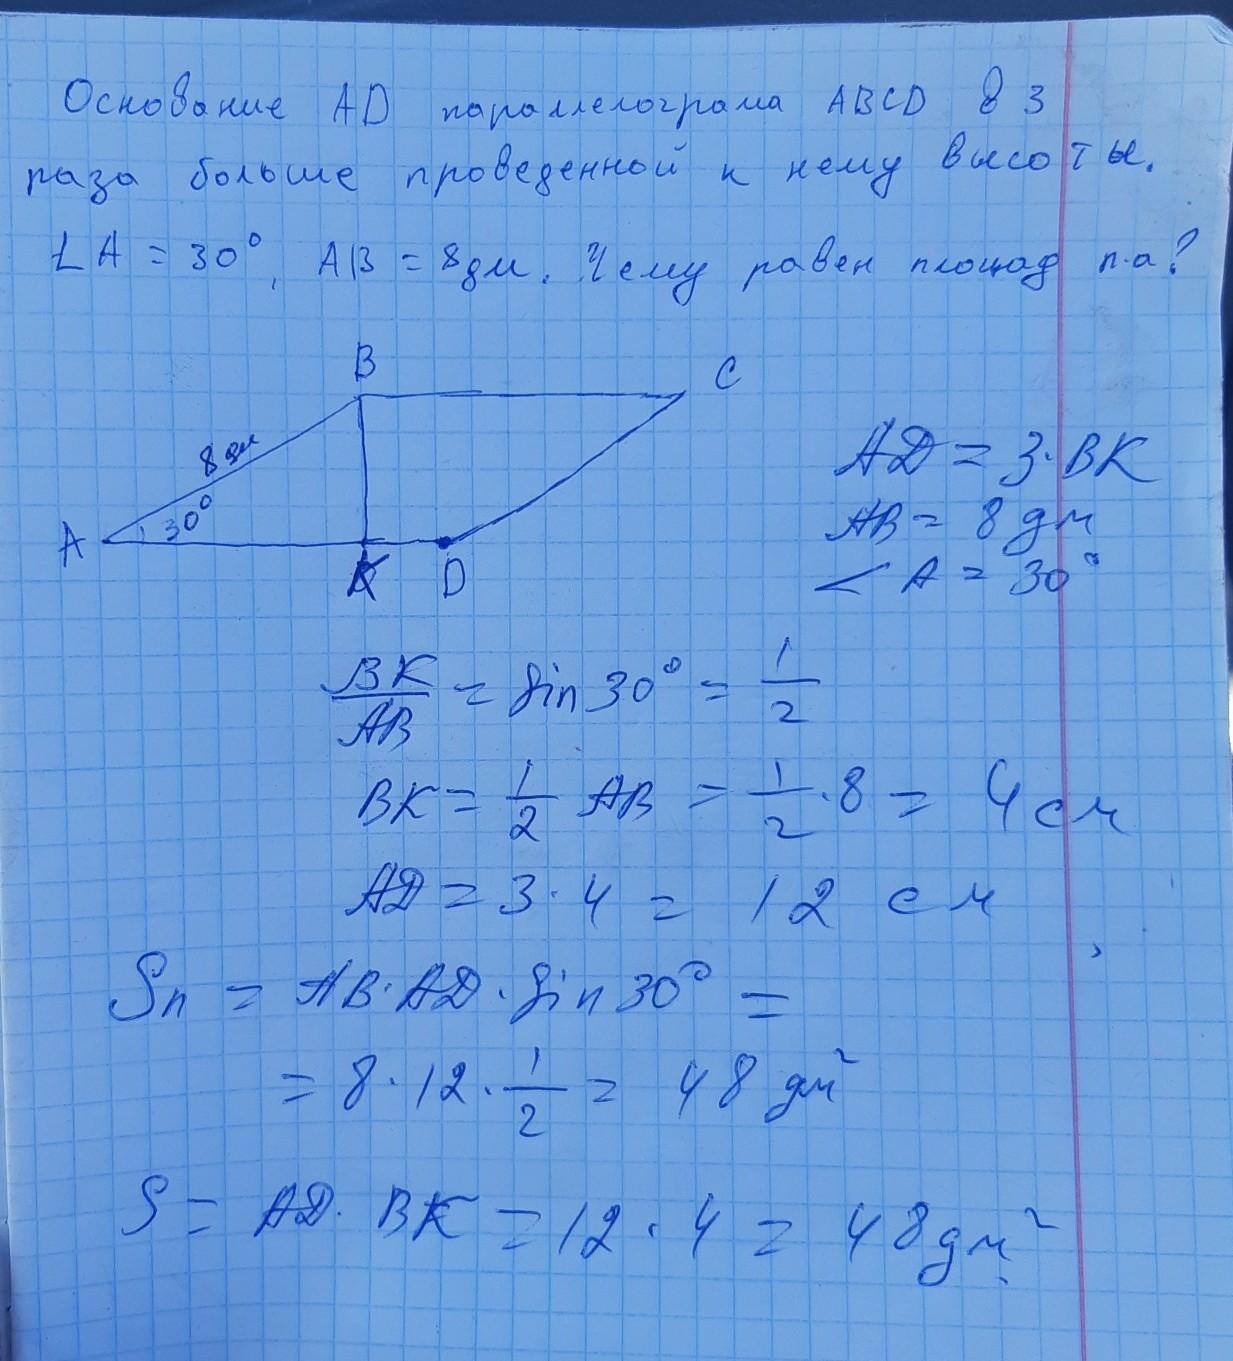 Основание AD параллелограма ABCD в 3
раза больше проведенной к нему высоты.
∠A = 30°, AB = 8 дм. Чему равен площад п-а?
B
C
8 дм
30°
A
K
D
AD = 3 · BK
AB = 8 дм
∠A = 30°
BK/AB = sin 30° = 1/2
BK = 1/2 AB = 1/2 · 8 = 4 см
AD = 3 · 4 = 12 см
Sп = AB · AD · sin 30° =
= 8 · 12 · 1/2 = 48 дм²
S = AD · BK = 12 · 4 = 48 дм²